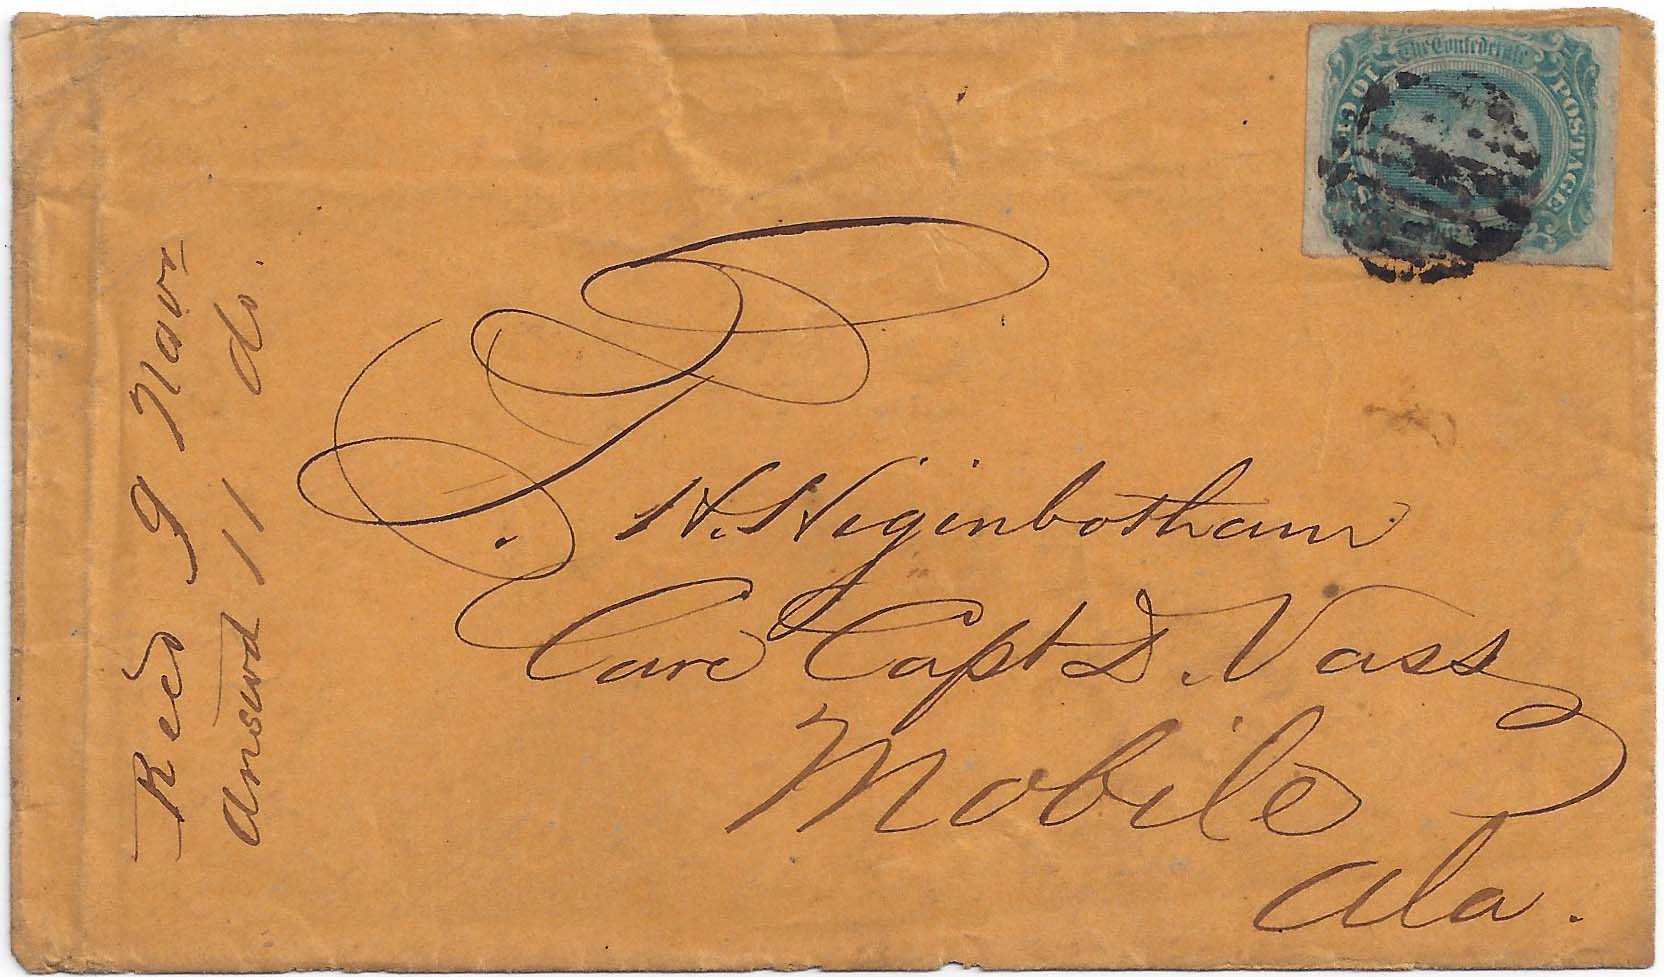 The Confederate
POSTAGE
T. H. Higinbotham
Care Capt D. Vass
Mobile
Ala.
Recd 9 Novr
Answd 11 do.